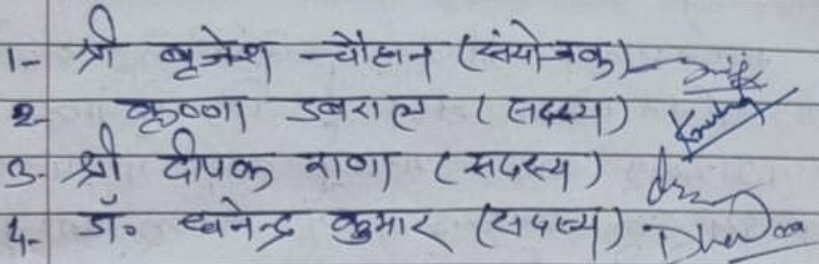 1- श्री बृजेश चौहान (संयोजक)
2- कृष्णा डबराल (सदस्य)
3- श्री दीपक राणा (सदस्य)
4- डॉ० ध्वनेन्द्र कुमार (सदस्य)